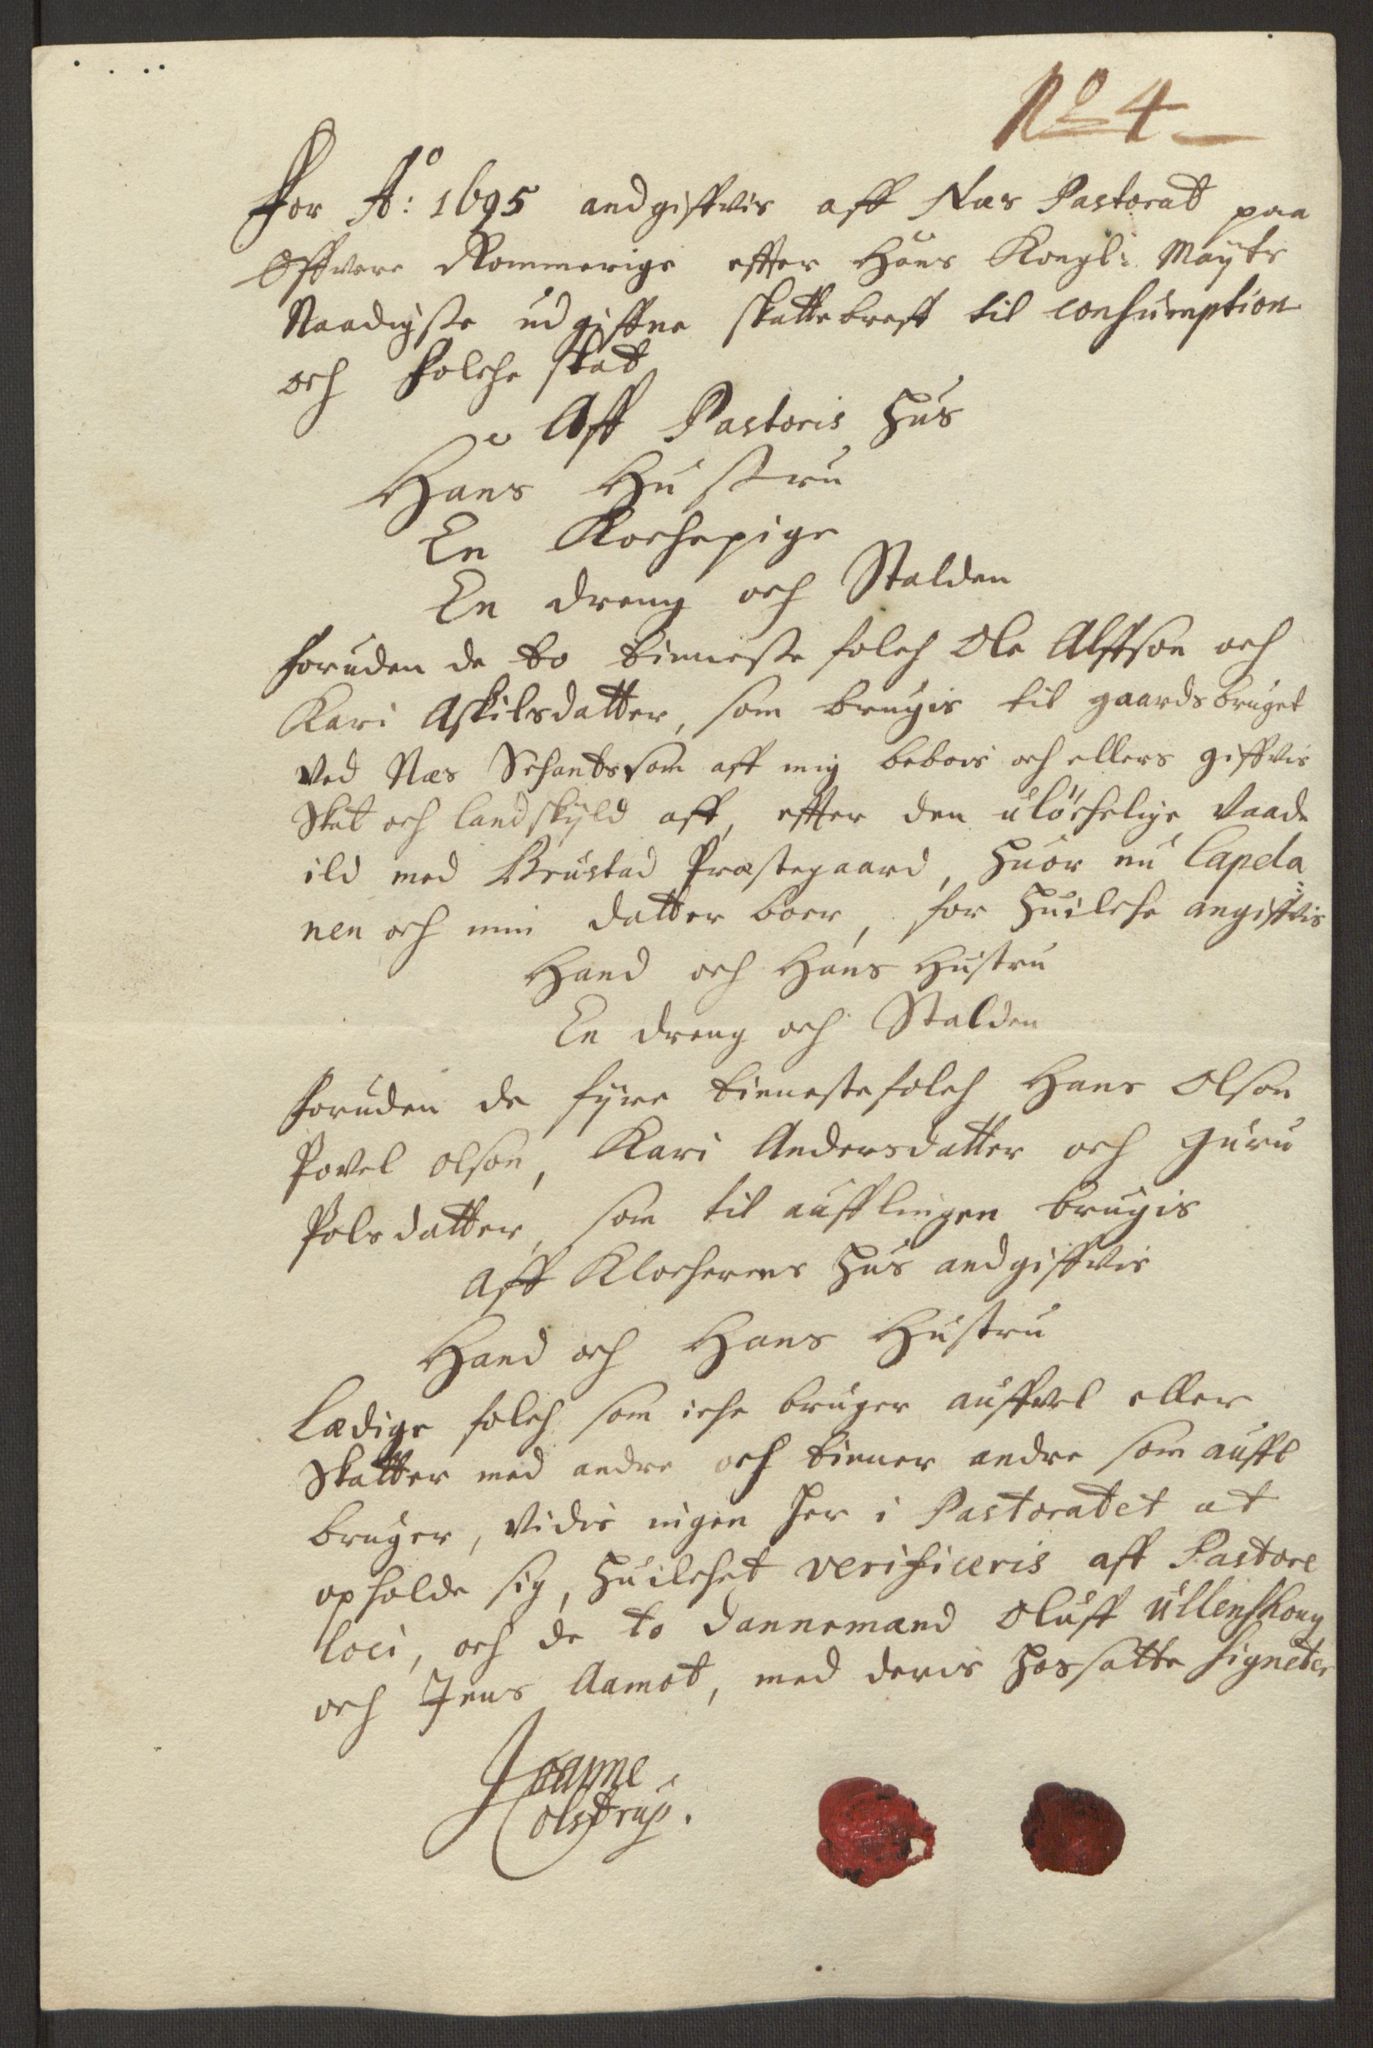 No 4
For Ao: 1695 andgiffvis aff Næs Pastorat paa
Øffvere Rommerige effter Hans Kongl: Mayts
Naadigste udgiffne skattebreff til consumption
och folche skat
Aff Pastoris Hus
Hans Hustru
En Kochepige
En dreng och Stalden
foruden de to tieniste folch Ole Alffson och
Kari Askilsdatter, som brugis til gaardsbruget
ved Næs Schants som aff mig bebois och ellers giffvis
Skat och landskyld aff, effter den uløchelige Vaade
ild med Brustad Præstegaard, huor nu Capela
nen och min datter boer, for huilche angiffvis
Hand och Hans Hustru
En dreng och Stalden
foruden de fyre tienestefolch Hans Olson
Povel olson, Kari Andersdatter och Guru
Polsdatter, som til aufflingen brugis
Aff Klocherens Hus andgiffvis
Hand och Hans Hustru
Lædige folch som iche bruger auffvel eller
Skatter med andre och tiener andre som auffl
bruger, vidis ingen her i Pastoratet at
opholde sig, huilchet verificeris aff Pastore
loci, och de to dannemænd Oluff Ullenshoug
och Jens Aamot, med deris hossatte signeter
Colstrup.